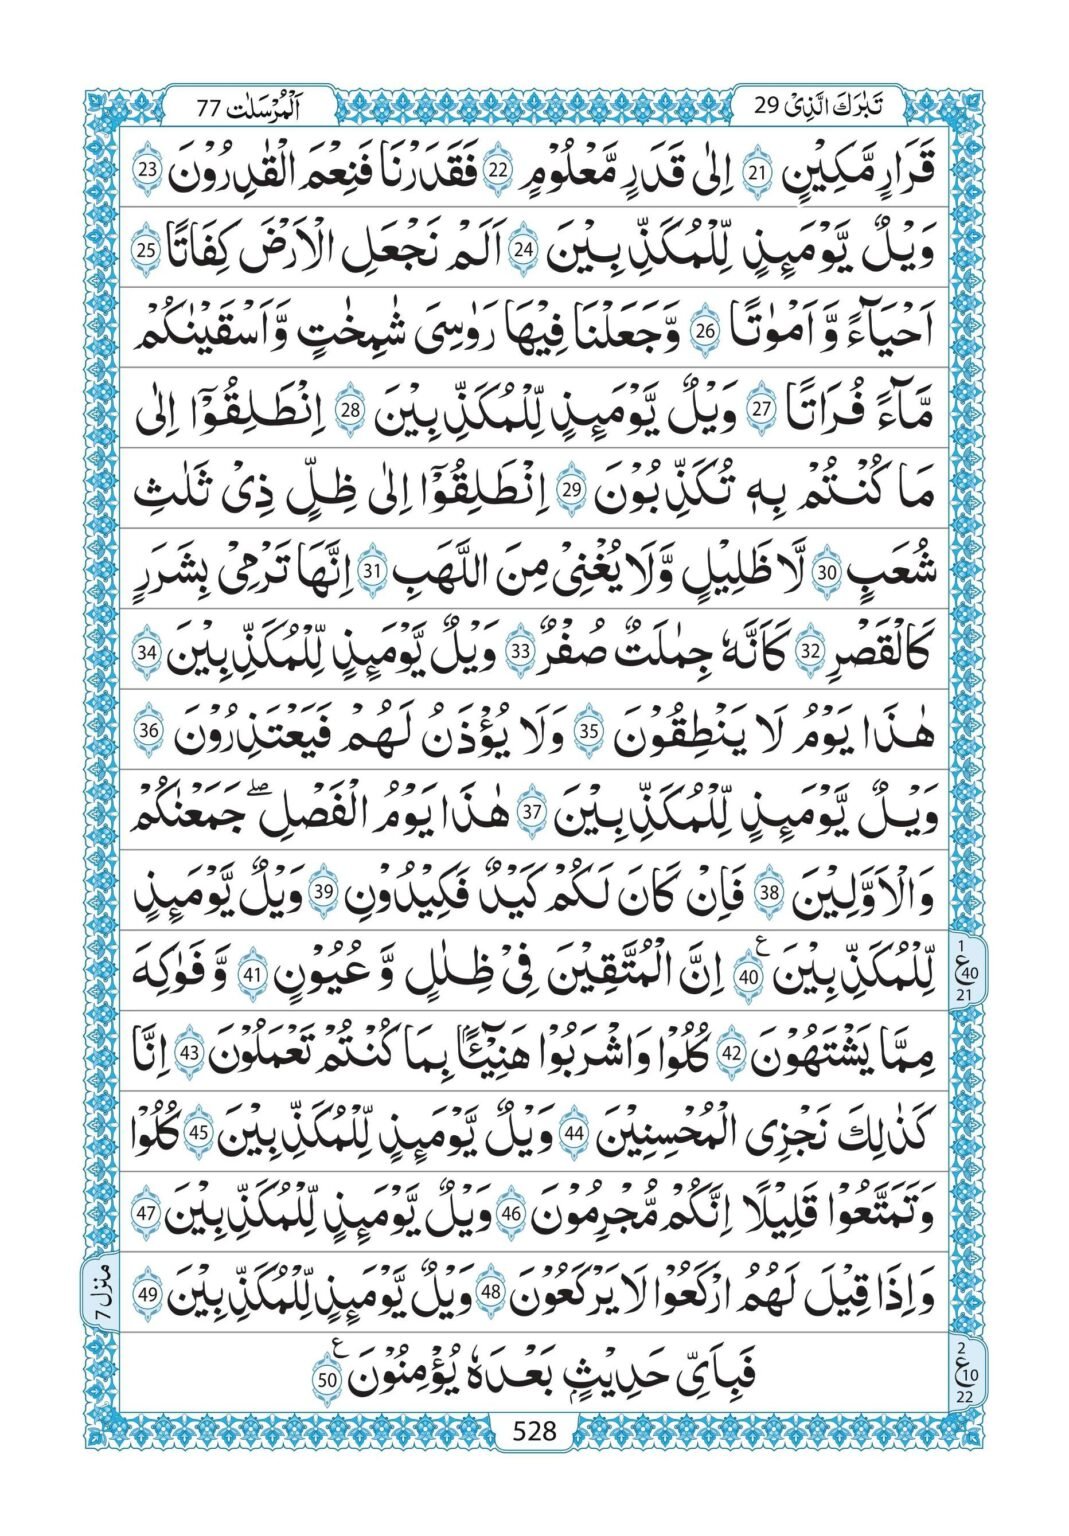 تَبٰرَكَ الَّذِیْ 29
اَلْمُرْسَلٰت 77
قَرَارٍ مَّكِیْنٍ 21 اِلٰی قَدَرٍ مَّعْلُوْمٍ 22 فَقَدَرْنَا فَنِعْمَ الْقٰدِرُوْنَ 23
وَیْلٌ یَّوْمَىِٕذٍ لِّلْمُكَذِّبِیْنَ 24 اَلَمْ نَجْعَلِ الْاَرْضَ كِفَاتًا 25
اَحْیَآءً وَّ اَمْوٰتًا 26 وَّ جَعَلْنَا فِیْهَا رَوٰسِیَ شٰمِخٰتٍ وَّ اَسْقَیْنٰكُمْ
مَّآءً فُرَاتًا 27 وَیْلٌ یَّوْمَىِٕذٍ لِّلْمُكَذِّبِیْنَ 28 اِنْطَلِقُوْۤا اِلٰی
مَا كُنْتُمْ بِهٖ تُكَذِّبُوْنَ 29 اِنْطَلِقُوْۤا اِلٰی ظِلٍّ ذِیْ ثَلٰثِ
شُعَبٍ 30 لَّا ظَلِیْلٍ وَّ لَا یُغْنِیْ مِنَ اللَّهَبِ 31 اِنَّهَا تَرْمِیْ بِشَرَرٍ
كَالْقَصْرِ 32 كَاَنَّهٗ جِمٰلَتٌ صُفْرٌ 33 وَیْلٌ یَّوْمَىِٕذٍ لِّلْمُكَذِّبِیْنَ 34
هٰذَا یَوْمُ لَا یَنْطِقُوْنَ 35 وَلَا یُؤْذَنُ لَهُمْ فَیَعْتَذِرُوْنَ 36
وَیْلٌ یَّوْمَىِٕذٍ لِّلْمُكَذِّبِیْنَ 37 هٰذَا یَوْمُ الْفَصْلِ ۖۚ جَمَعْنٰكُمْ
وَالْاَوَّلِیْنَ 38 فَاِنْ كَانَ لَكُمْ كَیْدٌ فَكِیْدُوْنِ 39 وَیْلٌ یَّوْمَىِٕذٍ
لِّلْمُكَذِّبِیْنَ 40 ع اِنَّ الْمُتَّقِیْنَ فِیْ ظِلٰلٍ وَّ عُیُوْنٍ 41 وَّ فَوٰكِهَ
1
ع 40
21
مِمَّا یَشْتَهُوْنَ 42 كُلُوْا وَاشْرَبُوْا هَنِیْٓـًٔۢا بِمَا كُنْتُمْ تَعْمَلُوْنَ 43 اِنَّا
كَذٰلِكَ نَجْزِی الْمُحْسِنِیْنَ 44 وَیْلٌ یَّوْمَىِٕذٍ لِّلْمُكَذِّبِیْنَ 45 كُلُوْا
وَتَمَتَّعُوْا قَلِیْلًا اِنَّكُمْ مُّجْرِمُوْنَ 46 وَیْلٌ یَّوْمَىِٕذٍ لِّلْمُكَذِّبِیْنَ 47
وَاِذَا قِیْلَ لَهُمُ ارْكَعُوْا لَا یَرْكَعُوْنَ 48 وَیْلٌ یَّوْمَىِٕذٍ لِّلْمُكَذِّبِیْنَ 49
منزل 7
فَبِاَیِّ حَدِیْثٍۭ بَعْدَهٗ یُؤْمِنُوْنَ 50 ع
2
ع 10
22
528